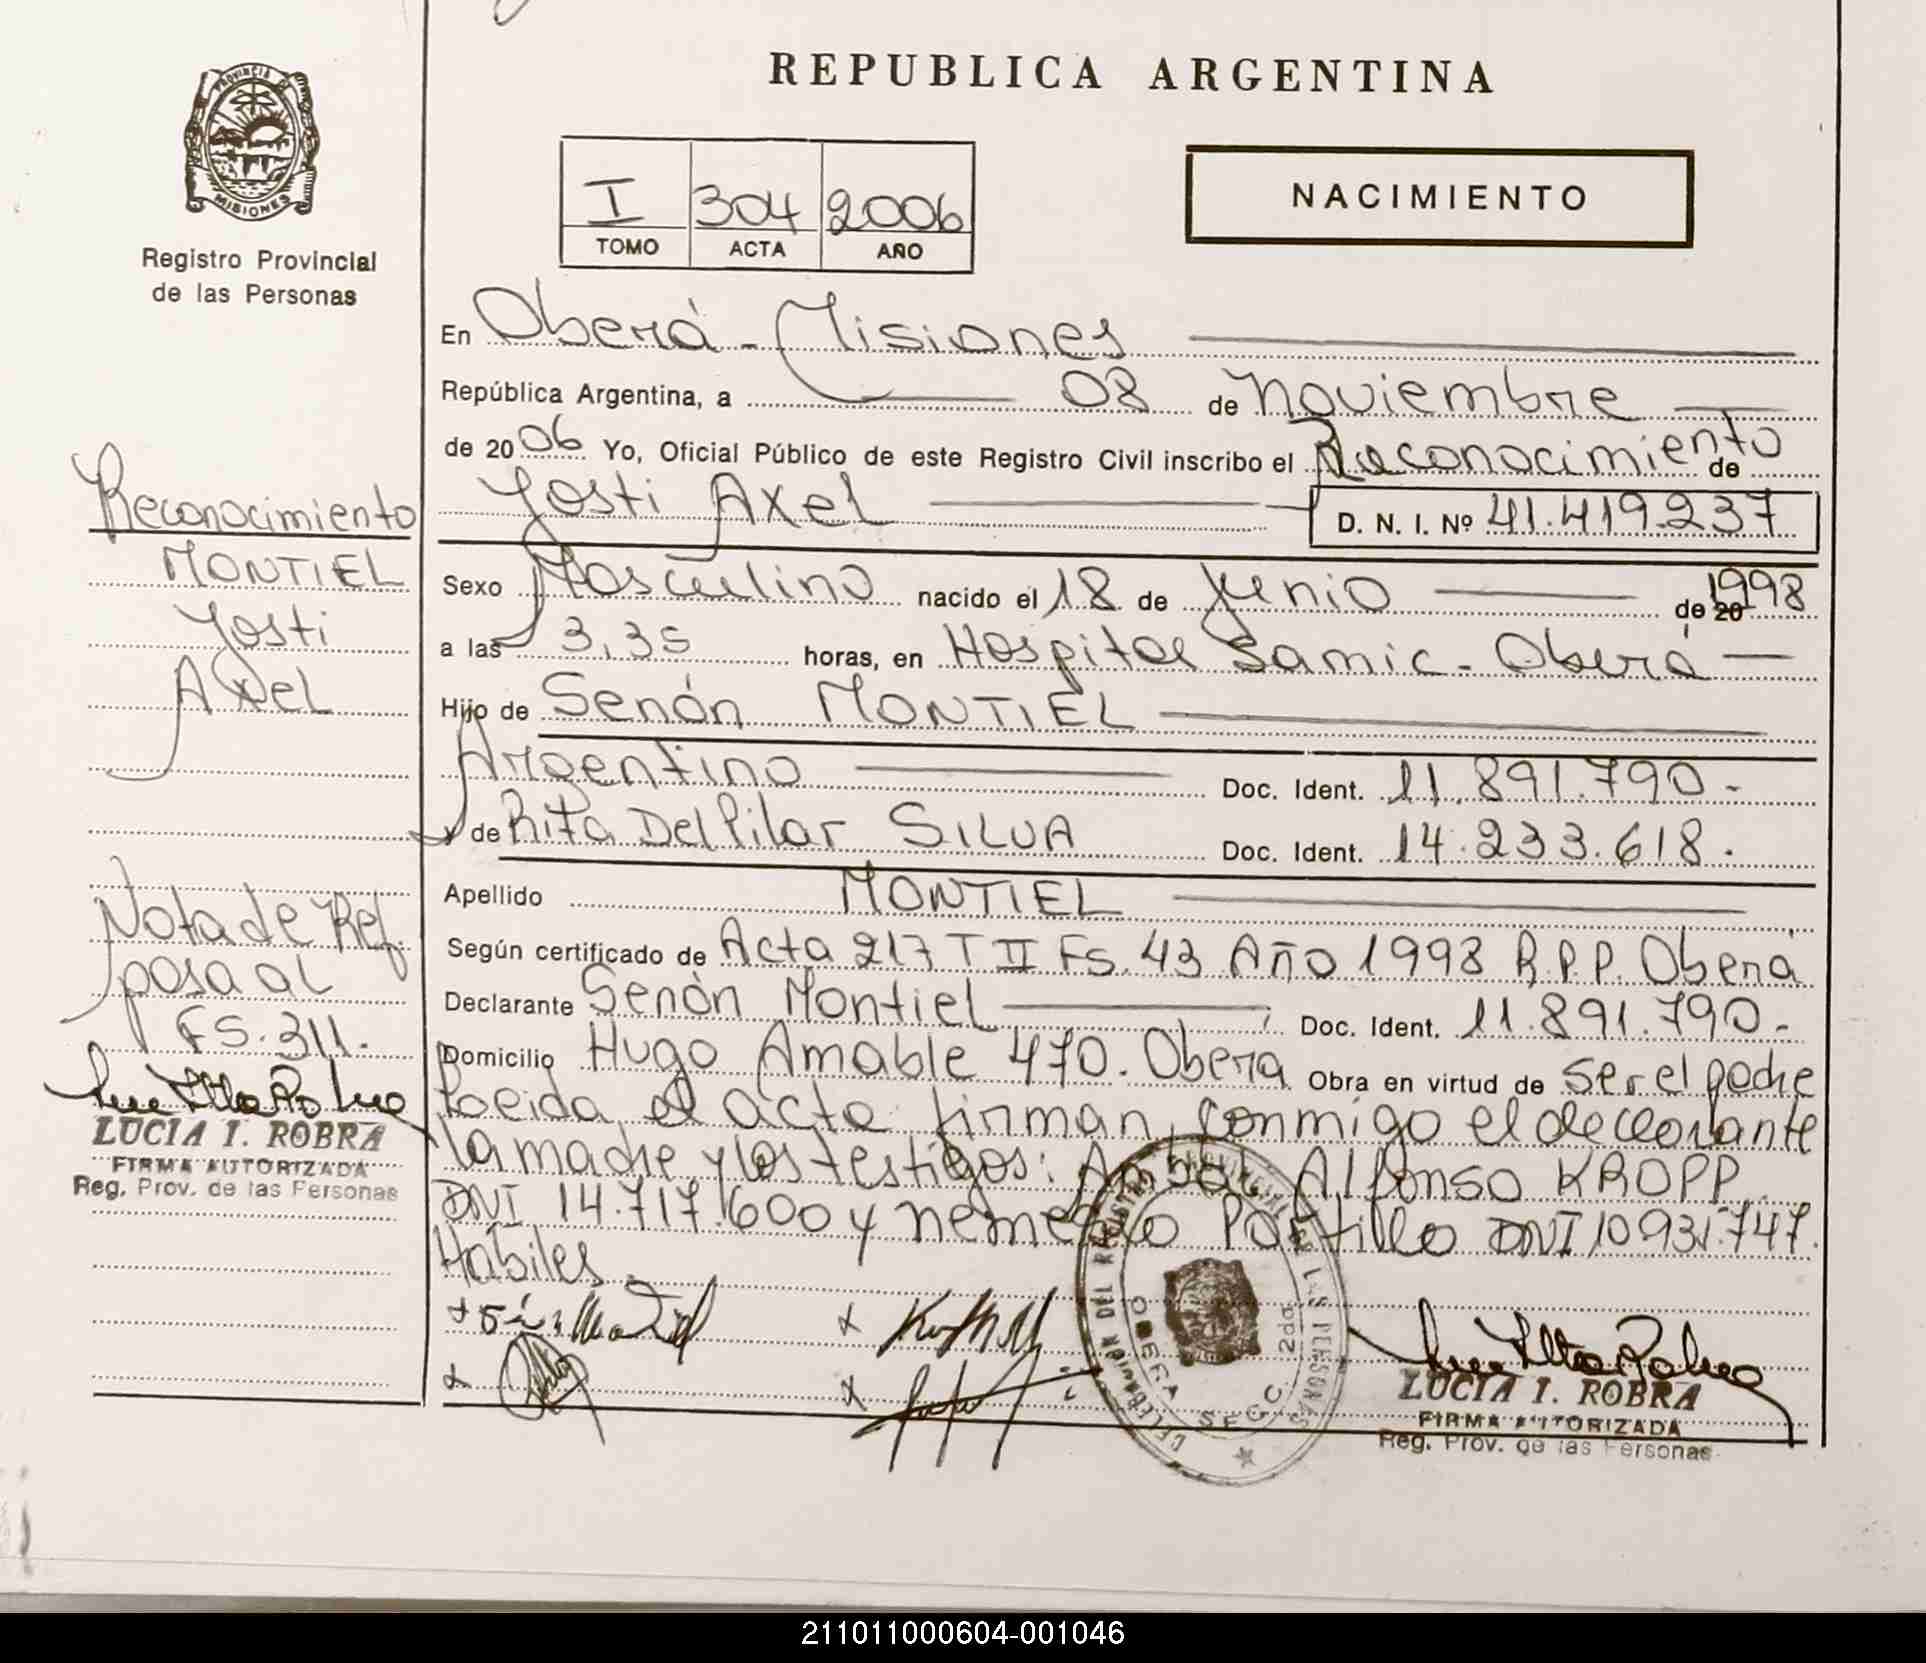 REPUBLICA ARGENTINA
PROVINCIA DE
MISIONES
Registro Provincial
de las Personas
I 304 2006
TOMO ACTA AÑO
NACIMIENTO
En Oberá - Misiones
República Argentina, a 08 de Noviembre
de 2006 Yo, Oficial Público de este Registro Civil inscribo el Reconocimiento de
Yosti Axel D. N. I. Nº 41.419.237
Sexo Masculino nacido el 18 de Junio de 20 1998
a las 3,35 horas, en Hospital Samic - Oberá
Hijo de Senón MONTIEL
Argentino Doc. Ident. 11.891.790.-
y de Rita Del Pilar SILVA Doc. Ident. 14.233.618.
Apellido MONTIEL
Según certificado de Acta 217 T II Fs. 43 Año 1998 R.P.P. Oberá
Declarante Senón Montiel Doc. Ident. 11.891.790.-
Domicilio Hugo Amable 470. Oberá Obra en virtud de ser el padre
Leida el acta firman conmigo el declarante
la madre y los testigos: Alfonso KROPP
DNI 14.717.600 y nemesio Portillo DNI 10931.747.
Hábiles
Reconocimiento
MONTIEL
Yosti
Axel
Nota de Ref.
pasa al
FS. 311.
LUCIA I. ROBRA
FIRMA AUTORIZADA
Reg. Prov. de las Personas
DELEGACIÓN DEL REGISTRO PROVINCIAL DE LAS PERSONAS
OBERA SECC. 2da
LUCIA I. ROBRA
FIRMA AUTORIZADA
Reg. Prov. de las Personas
211011000604-001046